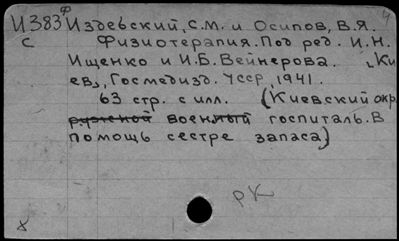 И383 Ф Издебский, С.М. и Осипов, В.Я. 4
с Физиотерапия. Под ред. И.Н.
Ищенко и И.Б. Вейнерова. [Ки
ев], Госмедизд. УССР, 1941.
63 стр. с илл. (Киевский окр.
военный госпиталь. В
помощь сестре запаса)
рк
х